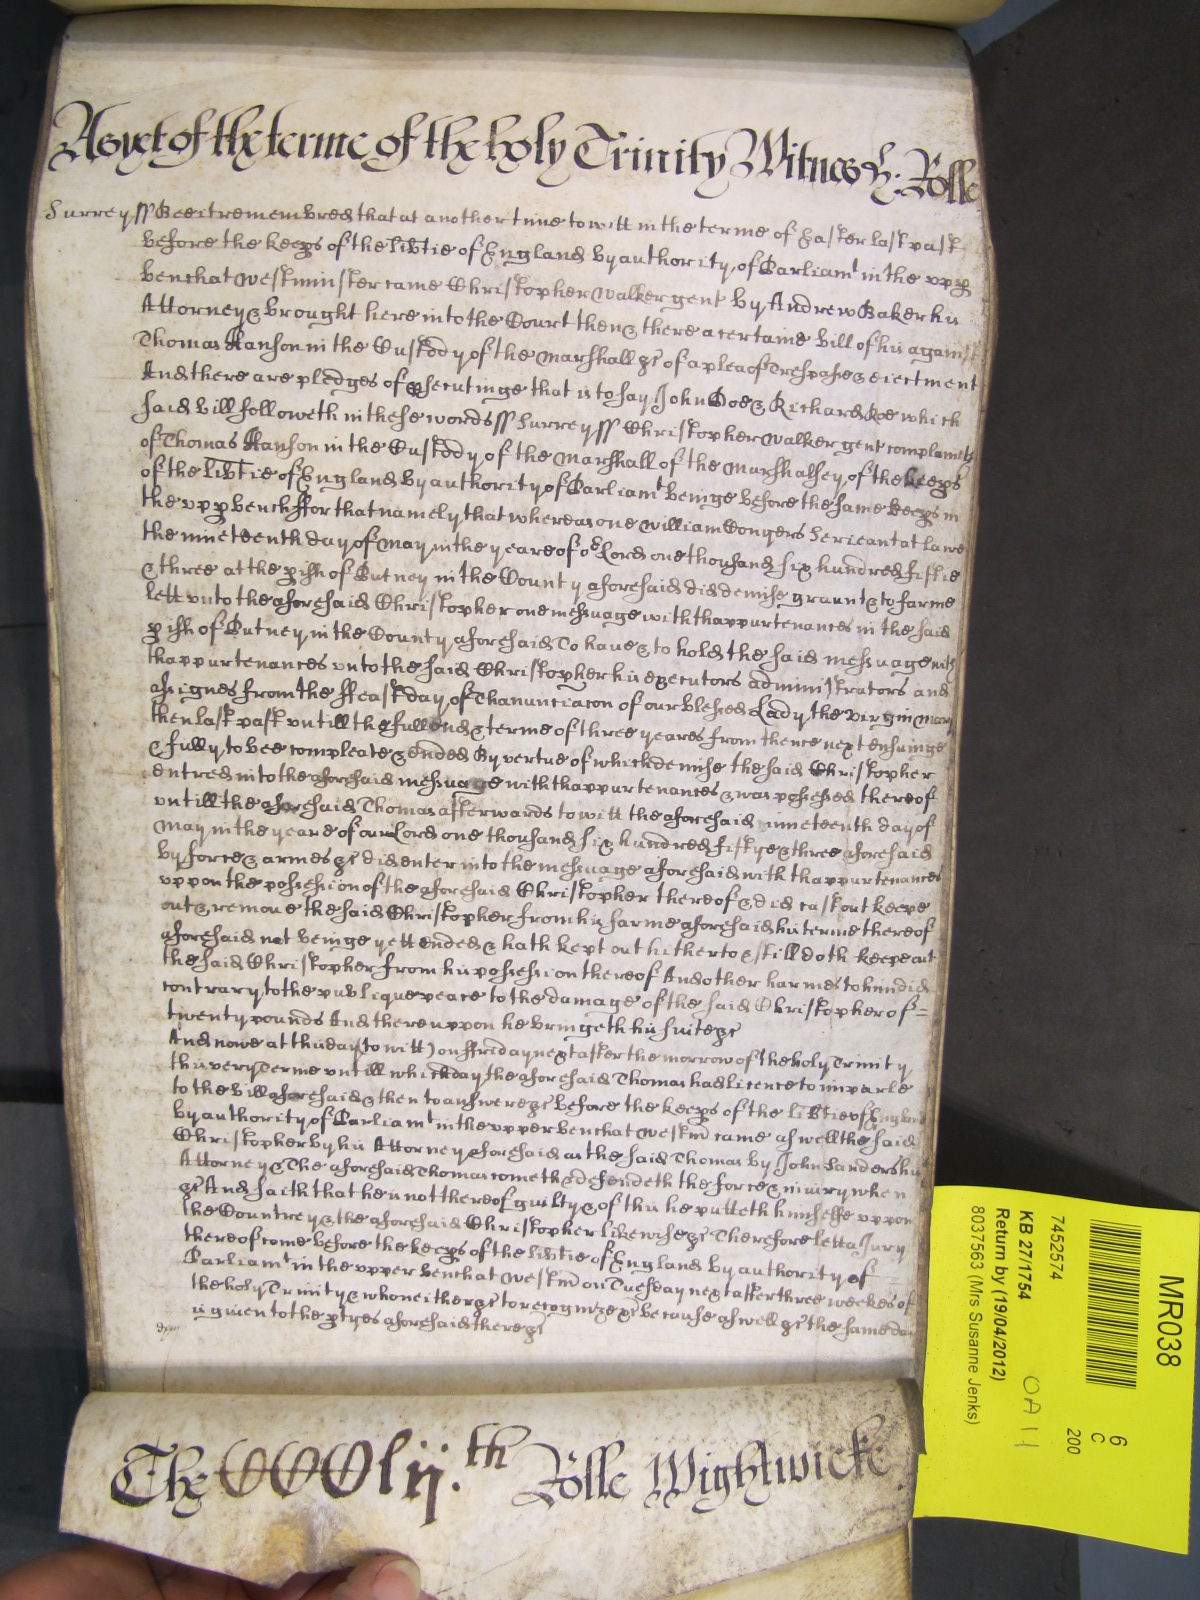 As yet of the terme of the holy Trinity Witnes H: Rolle
Surrey ss Bee it remembred that at another time to witt in the terme of Easter last past
before the keeps of the libtie of England by authority of Parliamt in the upp
bench at Westminster came Christopher Walker gent by Andrew Baker his
Attorney & brought here into the Court then & there a certaine bill of his against
Thomas Hanson in the Custody of the Marshall &c of a plea of Trespasse & eiectment
And there are pledges of psecutinge that is to say John Doe & Richard Roe which
said bill followeth in these words ss Surrey ss Christopher Walker gent complaineth
of Thomas Hanson in the Custody of the Marshall of the Marshalsey of the keeps
of the libtie of England by authority of Parliamt beinge before the same keeps in
the upp bench ffor that namely that whereas one William Conyers Serieant at lawe
the nineteenth day of May in the yeare of or Lord one thousand six hundred fiftie
& three at the pish of Putney in the County aforesaid did demise graunt & to farme
lett unto the aforesaid Christopher one messuage with thappurtenances in the said
pish of Putney in the County aforesaid To have & to hold the said messuage with
thappurtenances unto the said Christopher his executors administrators and
assignes from the ffeast day of Thanunciacon of our blessed Lady the virgin Mary
then last past untill the full end & terme of three yeares from thence next ensuinge
& fully to bee compleate & ended By vertue of which demise the said Christopher
entred into the aforesaid messuage with thappurtenances & was possessed thereof
untill the aforesaid Thomas afterwards to witt the aforesaid nineteenth day of
May in the yeare of our Lord one thousand six hundred fiftye & three aforesaid
by force & armes &c did enter into the messuage aforesaid with thappurtenances
uppon the possession of the aforesaid Christopher thereof & did cast out keepe
out & remove the said Christopher from his farme aforesaid his terme thereof
aforesaid not beinge yett ended & hath kept out hitherto & still doth keepe out
the said Christopher from his possession thereof And other harmes to him did
contrary to the publique peace to the damage of the said Christopher of =
twenty pounds And thereuppon he bringeth his suite &c
And nowe at this day (to witt) on ffriday next after the morrow of the holy Trinity
this very Terme untill which day the aforesaid Thomas had licence to imparle
to the bill aforesaid & then to answere &c before the keeps of the libtie of England
by authority of Parliamt in the upper bench at Westm came aswell the said
Christopher by his Attorney aforesaid as the said Thomas by John Sanders his
Attorney & The aforesaid Thomas cometh & defendeth the force & iniury when
&c And saith that he is not thereof guilty & of this he putteth himselfe uppon
the Countrey & the aforesaid Christopher likewise &c Therefore lett a Jury
thereof come before the keeps of the libtie of England by authority of
Parliamt in the upper bench at Westm on Tuesday next after three weekes of
the holy Trinity & who neither &c to recognize &c because aswell &c the same day
is given to the ptyes aforesaid there &c
The CCClij.th Rolle Wightwicke
MR038
6
C
200
7452574
KB 27/1754
OA 11
Return by (19/04/2012)
8037563 (Mrs Susanne Jenks)